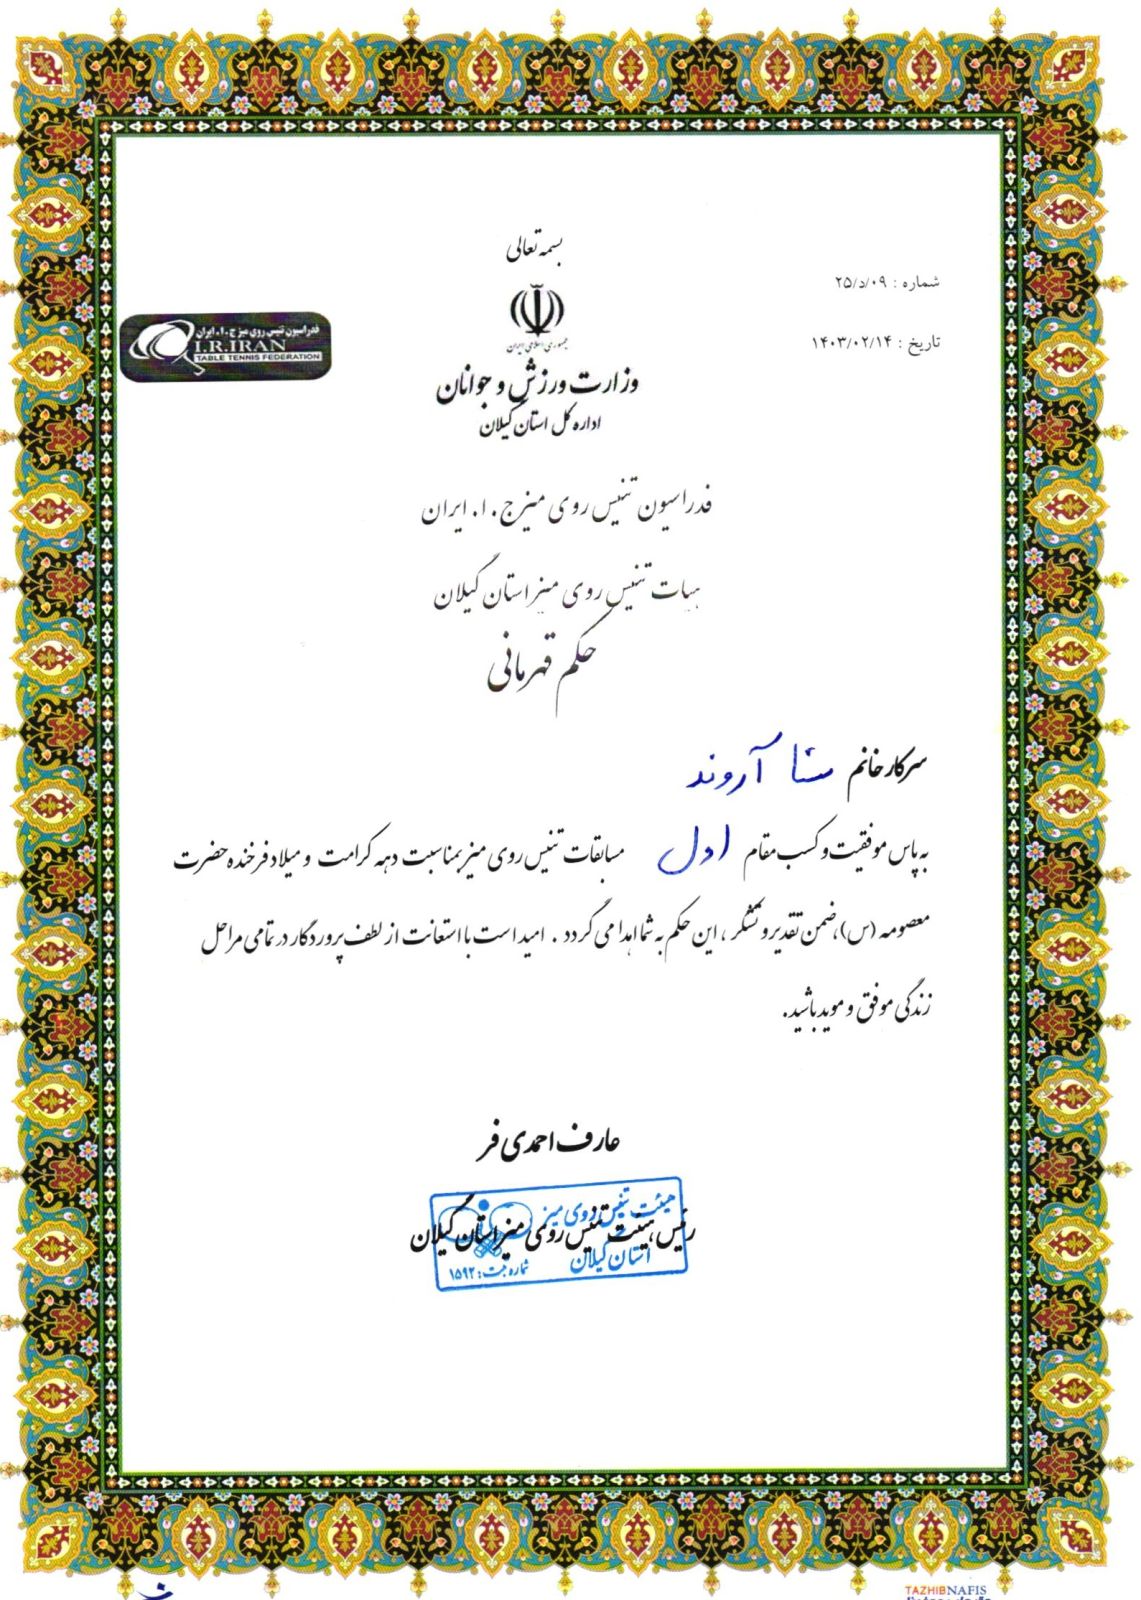 بسمه تعالی
شماره : ۲۵/د/۰۹
تاریخ : ۱۴۰۳/۰۲/۱۴
جمهوری اسلامی ایران
فدراسیون تنیس روی میز ج.ا. ایران
I.R.IRAN
TABLE TENNIS FEDERATION
وزارت ورزش و جوانان
اداره کل استان گیلان
فدراسیون تنیس روی میز ج.ا. ایران
هیات تنیس روی میز استان گیلان
حکم قهرمانی
سرکار خانم ستا آروند
به پاس موفقیت و کسب مقام اول مسابقات تنیس روی میز بمناسبت دهه کرامت و میلاد فرخنده حضرت
معصومه (س)، ضمن تقدیر و تشکر ، این حکم به شما اهدا می گردد . امید است با استعانت از لطف پروردگار در تمامی مراحل
زندگی موفق و موید باشید.
عارف احمدی فر
رئیس هیئت تنیس روی میز استان گیلان
هیئت تنیس روی میز
استان گیلان
شماره ثبت : ۱۵۹۲
TAZHIBNAFIS